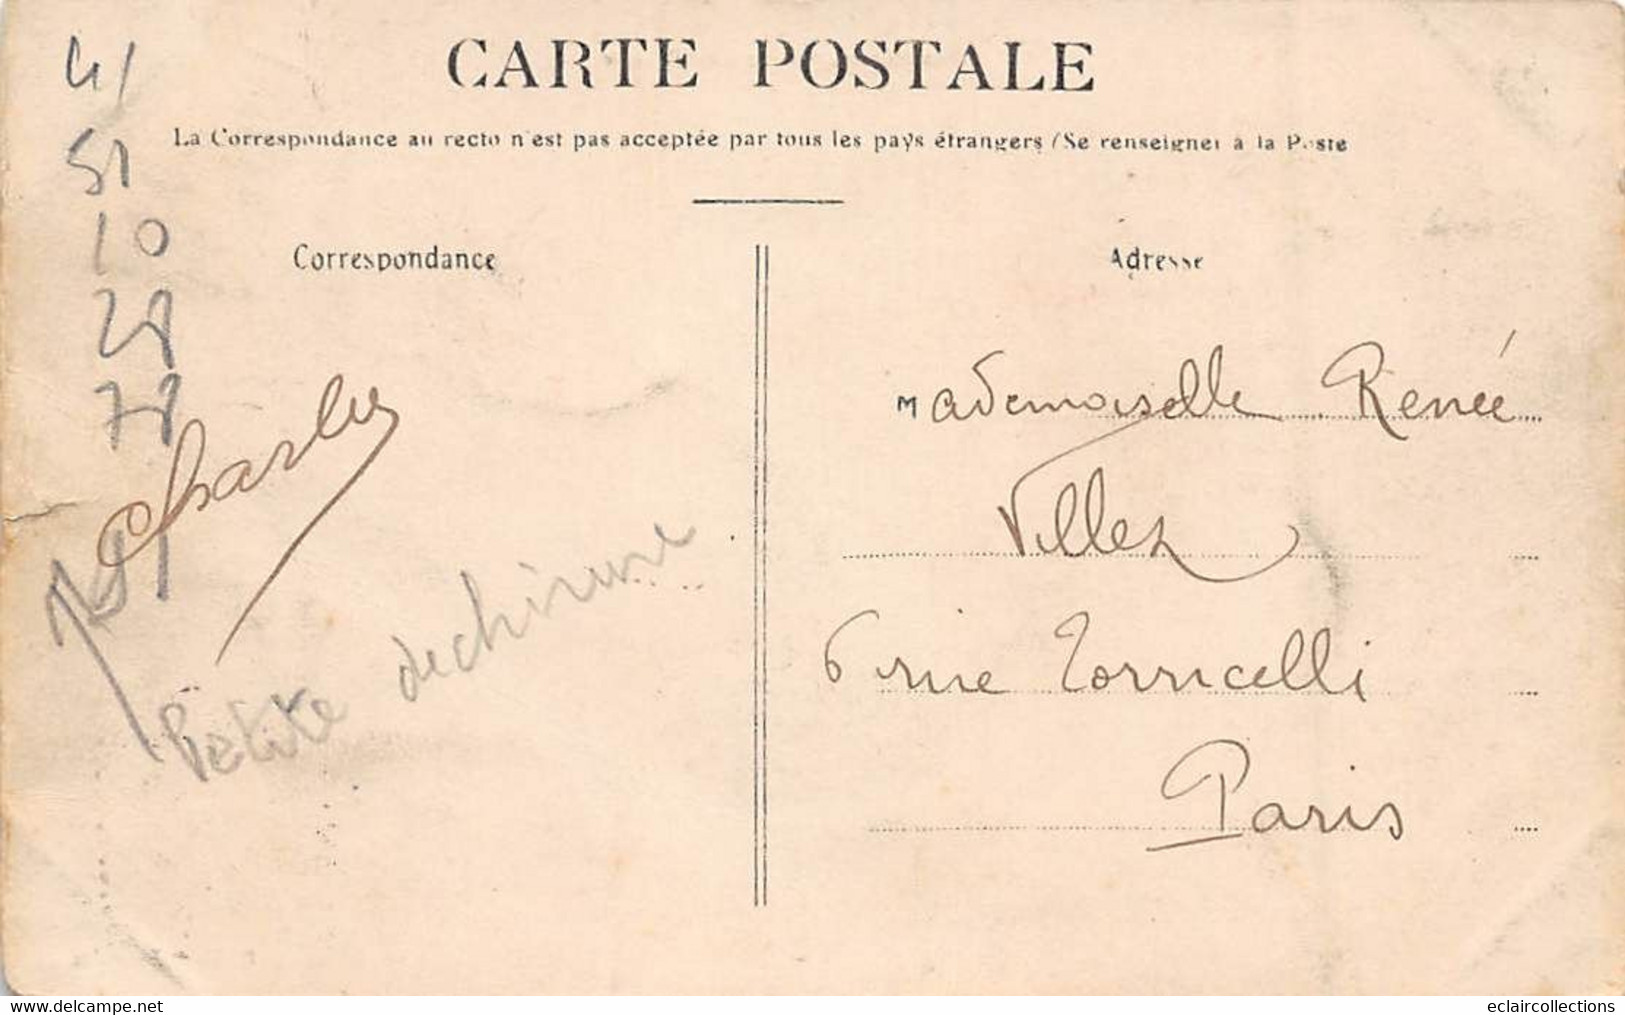 CARTE POSTALE
La Correspondance au recto n'est pas acceptée par tous les pays étrangers (Se renseigner à la Poste
Correspondance
41
51
10
28
78
Charley
Petite dechirure
Adresse
Mademoiselle Renée
Villez
6 rue Torricelli
Paris
www.delcampe.net
eclaircollections